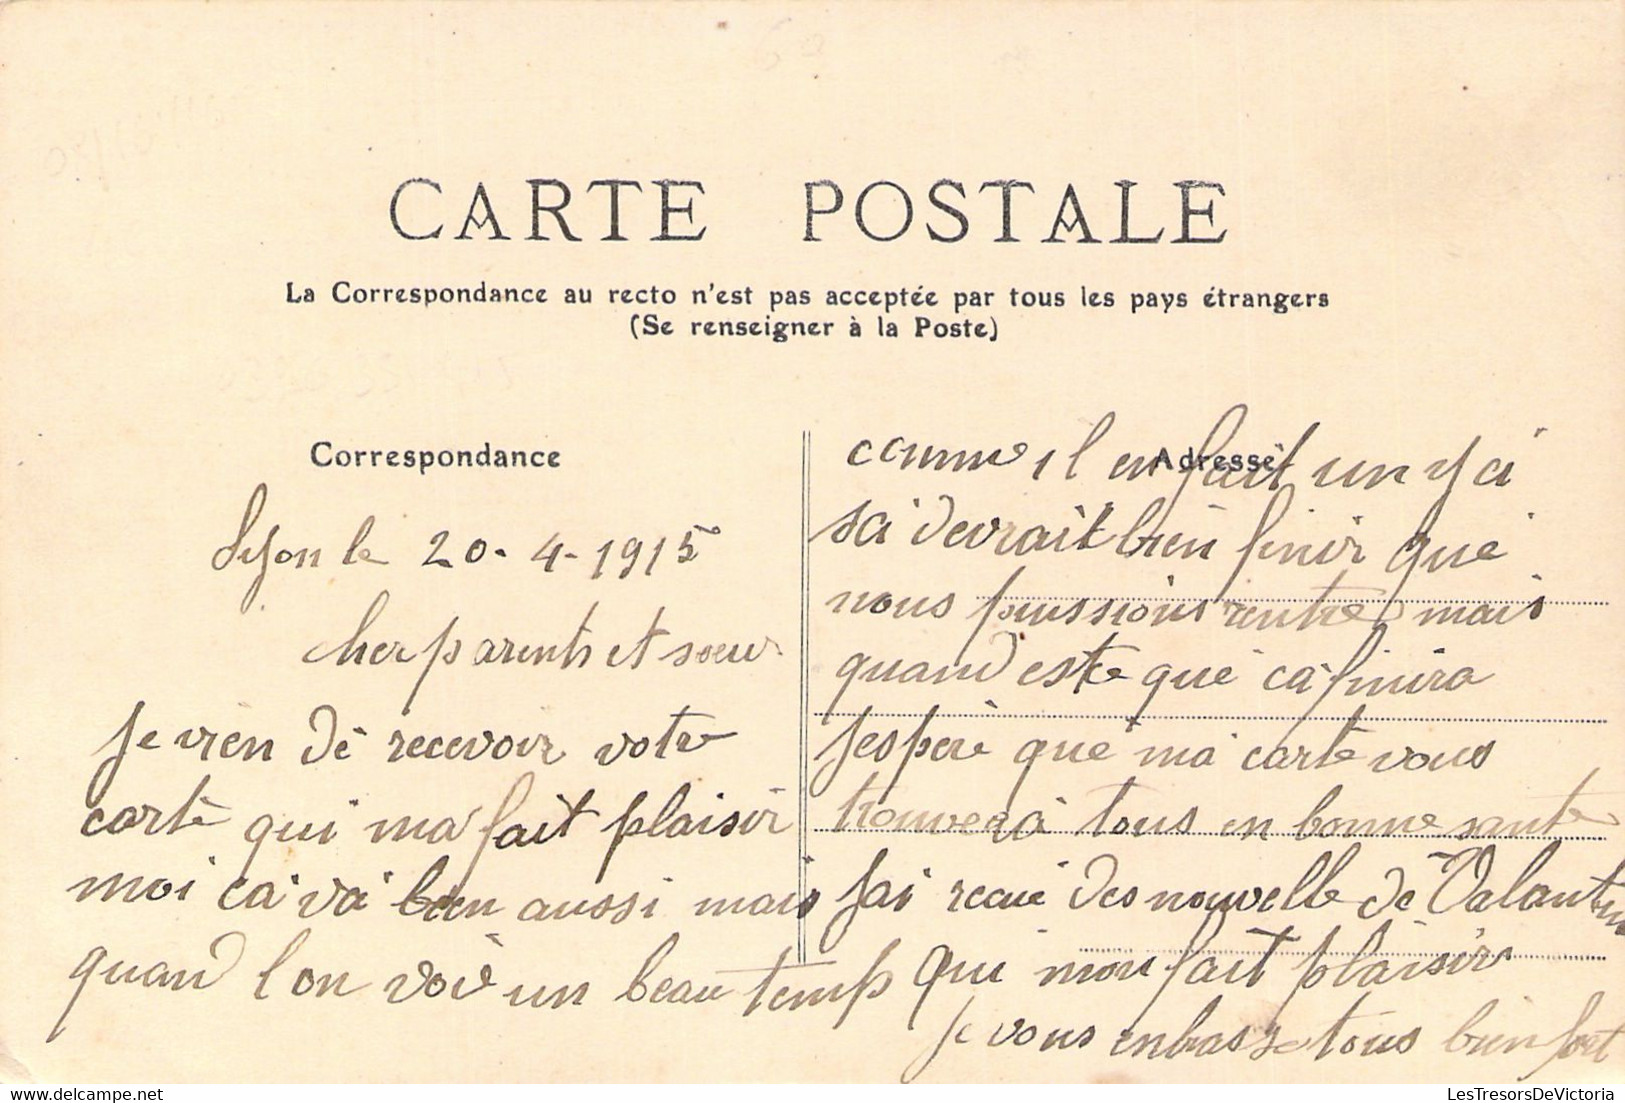 CARTE POSTALE
La Correspondance au recto n'est pas acceptée par tous les pays étrangers
(Se renseigner à la Poste)
Correspondance
Lyon le 20-4-1915
cher parents et soeur
Je vien de recevoir votre
carte qui ma fait plaisir
moi ca va bien aussi mais
quand l on voi un beau temp
Adresse
comme il en fait un y ci
sa devrait bien finir que
nous puissions rentre mais
quand este que ca finira
Jespere que ma carte vous
trouvera tous en bonne sante
Jai recue des nouvelle de Valantin
qui mon fait plaisir
Je vous enbasse tous bien fort
LesTresorsDeVictoria